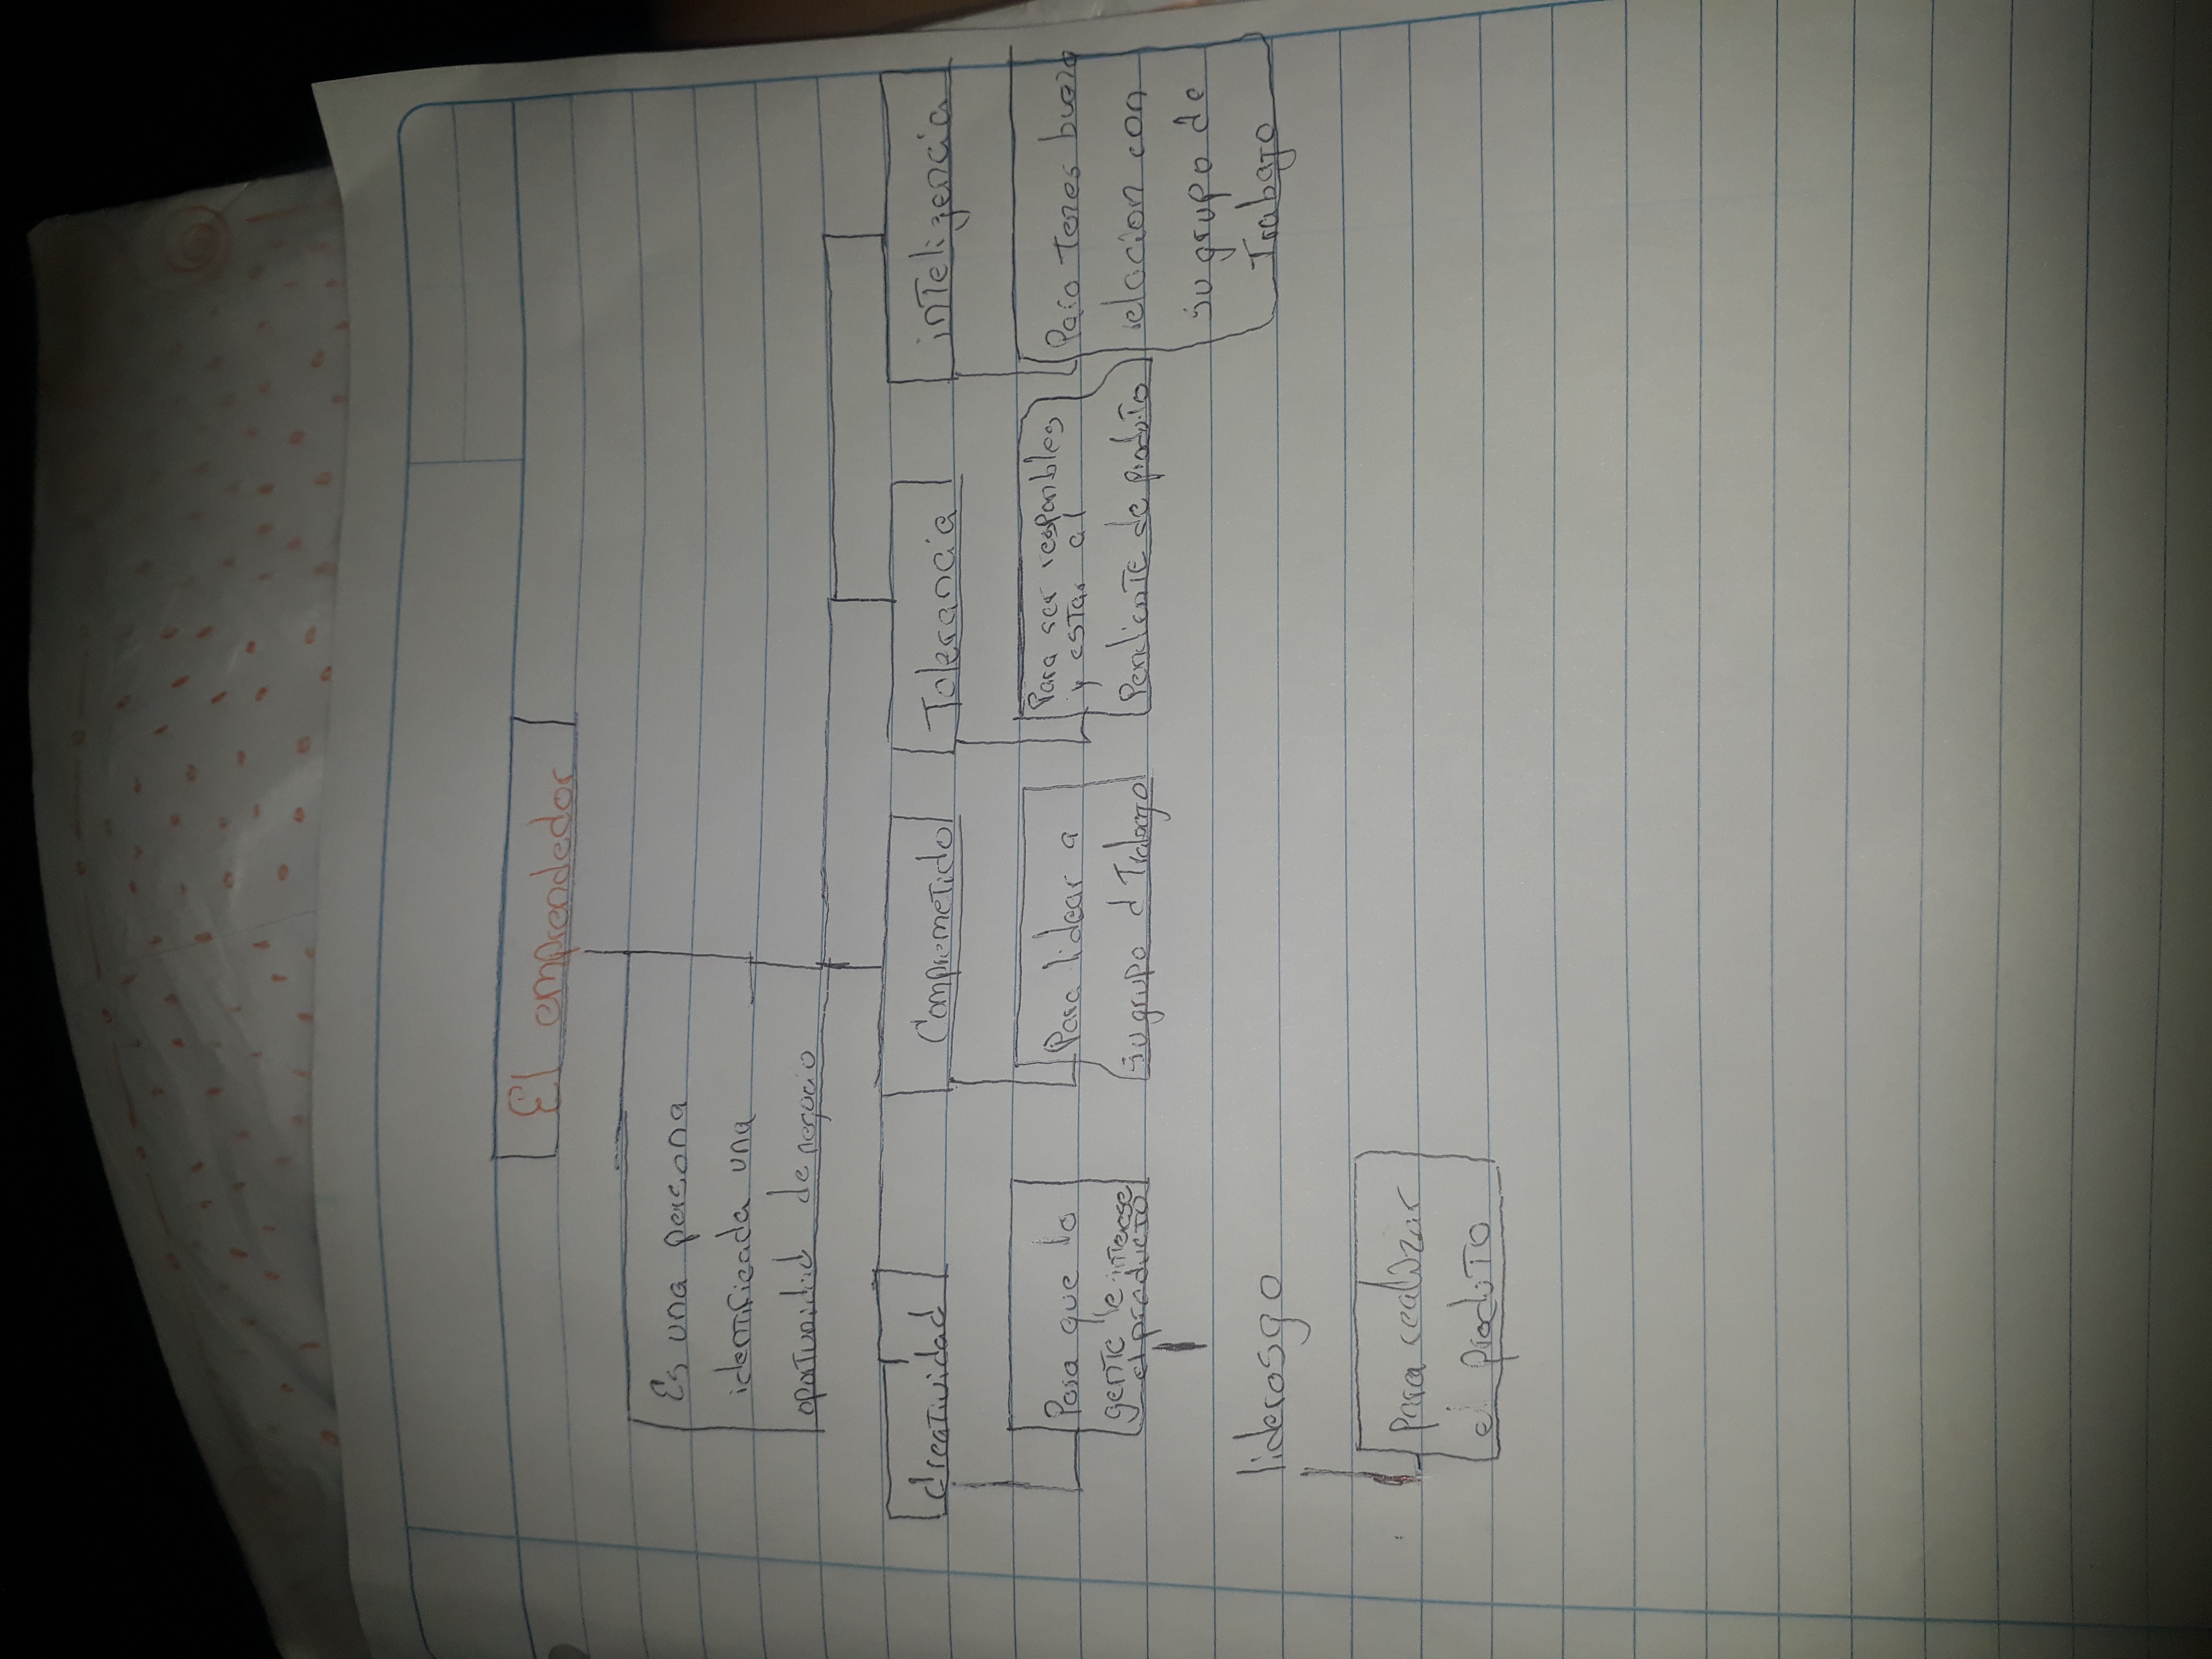 El emprendedor
Es una persona
identificada una
oportunidad de negocio
creatividad
Comprometido
Tolerancia
inTeligencia
Para que la
gente le interese
el producto
Para lidear a
su grupo d Trabajo
Para ser responbles
y estar al
Pendiente de produto
Para Tener buena
relacion con
su grupo de
Trabajo
liderasgo
Para realizar
el produto